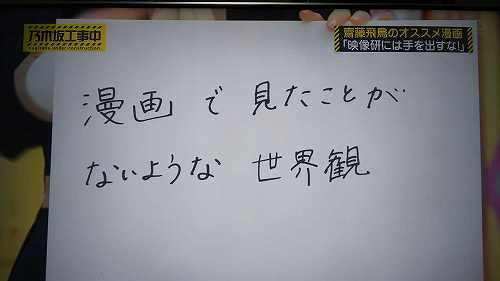 乃木坂工事中
nogizaka under construction
齋藤飛鳥のオススメ漫画
「映像研には手を出すな!」
漫画で見たことが
ないような世界観